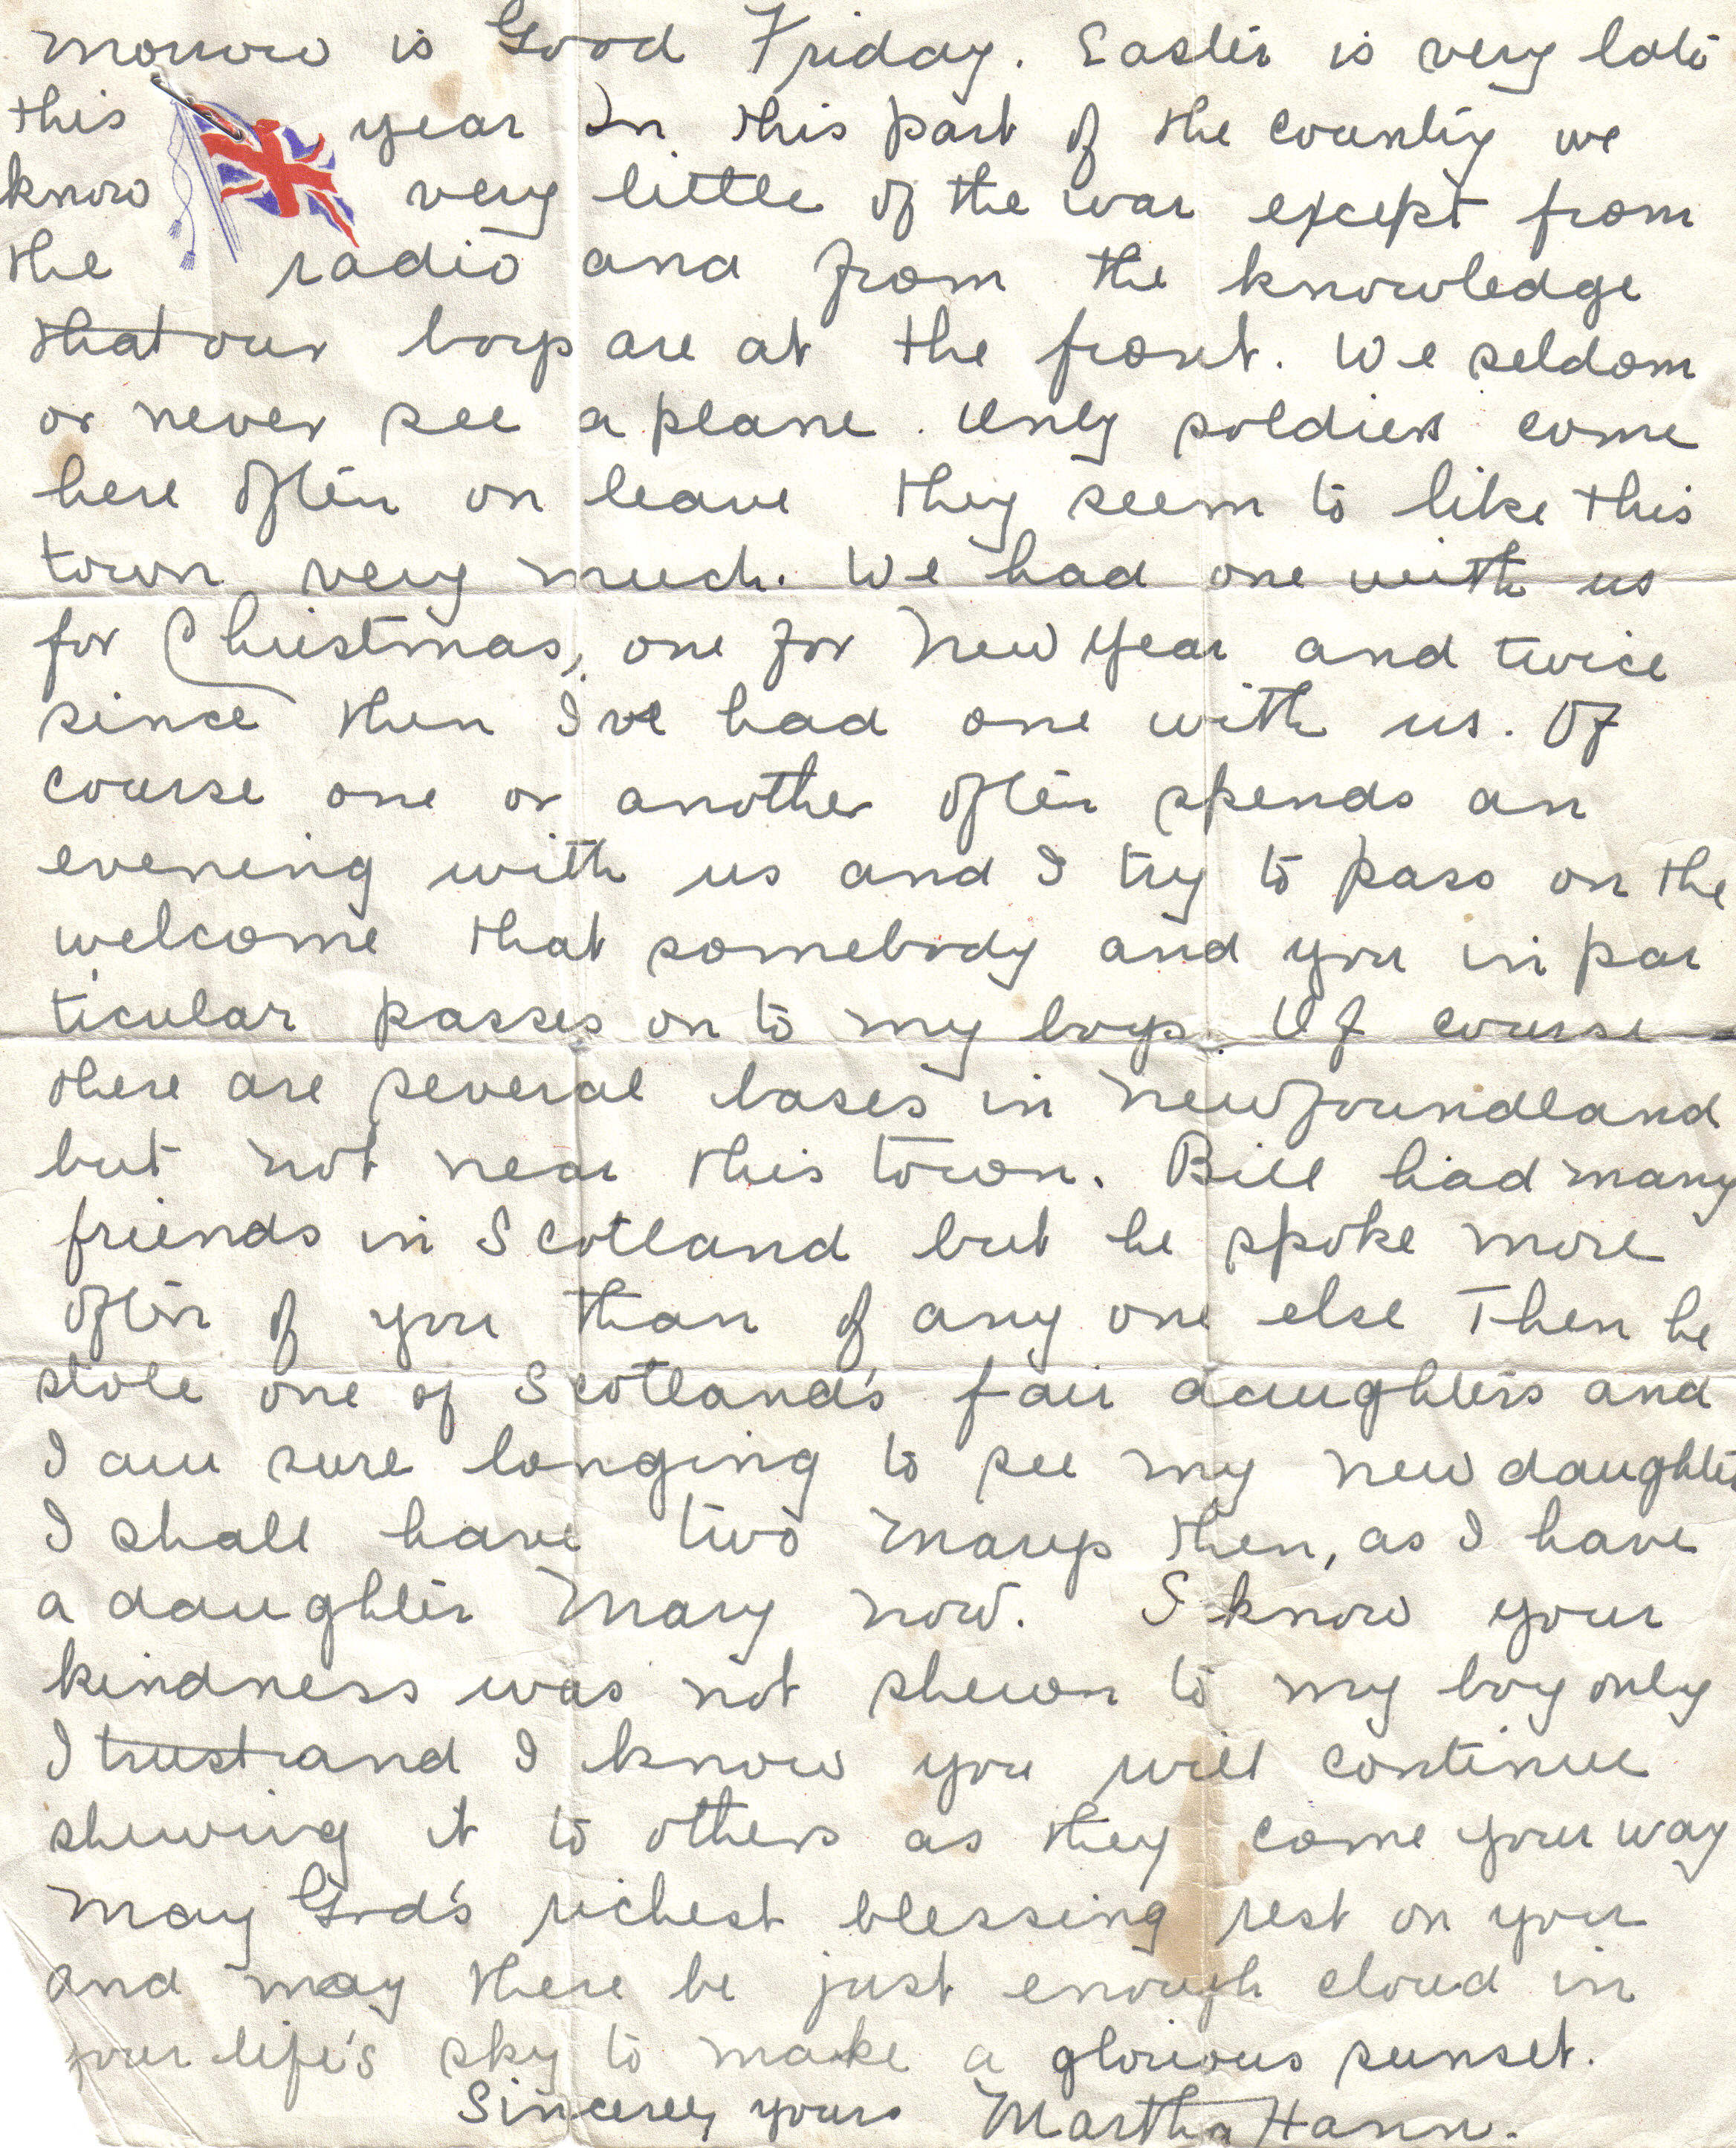 morrow is Good Friday. Easter is very late
this year In this part of the country we
know very little of the war except from
the radio and from the knowledge
that our boys are at the front. We seldom
or never see a plane. Only soldiers come
here often on leave they seem to like this
town very much. We had one with us
for Christmas, one for New Year and twice
since then I've had one with us. Of
course one or another often spends an
evening with us and I try to pass on the
welcome that somebody and you in par
ticular passes on to my boys. Of course
there are several bases in Newfoundland
but not near this town. Bill had many
friends in Scotland but he spoke more
often of you than of any one else Then he
stole one of Scotland's fair daughters and
I am sure longing to see my new daughter
I shall have two Marys then, as I have
a daughter Mary now. I know your
kindness was not shewn to my boy only
I trust and I know you will continue
shewing it to others as they come your way
May God's richest blessing rest on you
and may there be just enough cloud in
your life's sky to make a glorious sunset.
Sincerely yours Martha Hann.